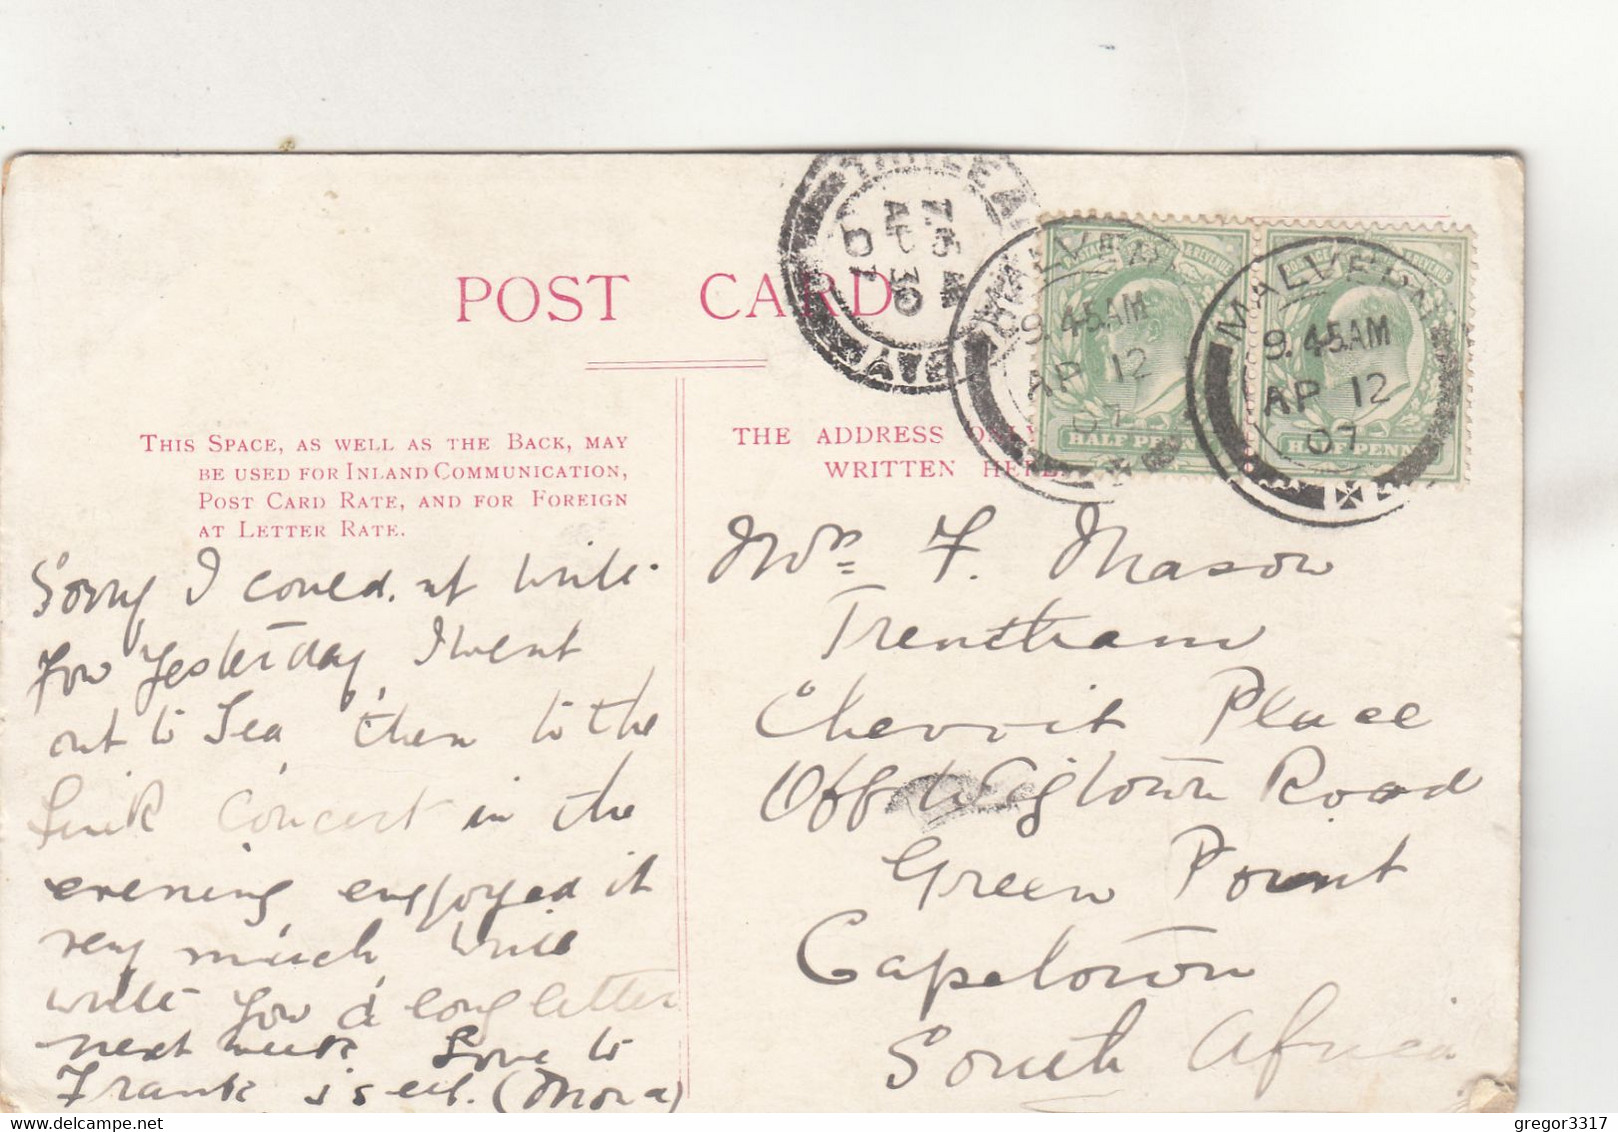 POST CARD
THIS SPACE, AS WELL AS THE BACK, MAY
BE USED FOR INLAND COMMUNICATION,
POST CARD RATE, AND FOR FOREIGN
AT LETTER RATE.
THE ADDRESS ONLY
WRITTEN HERE.
MALVERN
9.45AM
AP 12
07
MALVERN
9.45AM
AP 12
07
POSTAGE REVENUE
HALF PENNY
POSTAGE & REVENUE
HALF PENNY
Sorry I could nt write
you Yesterday, I went
out to Tea then to the
Link Concert in the
evening enjoyed it
very much will
write you a long letter
next week Love to
Frank & self. (Mona)
Mrs F. Mason
Trentham
Cheviot Place
Off Wigtown Road
Green Point
Capetown
South Africa
www.delcampe.net
gregor3317